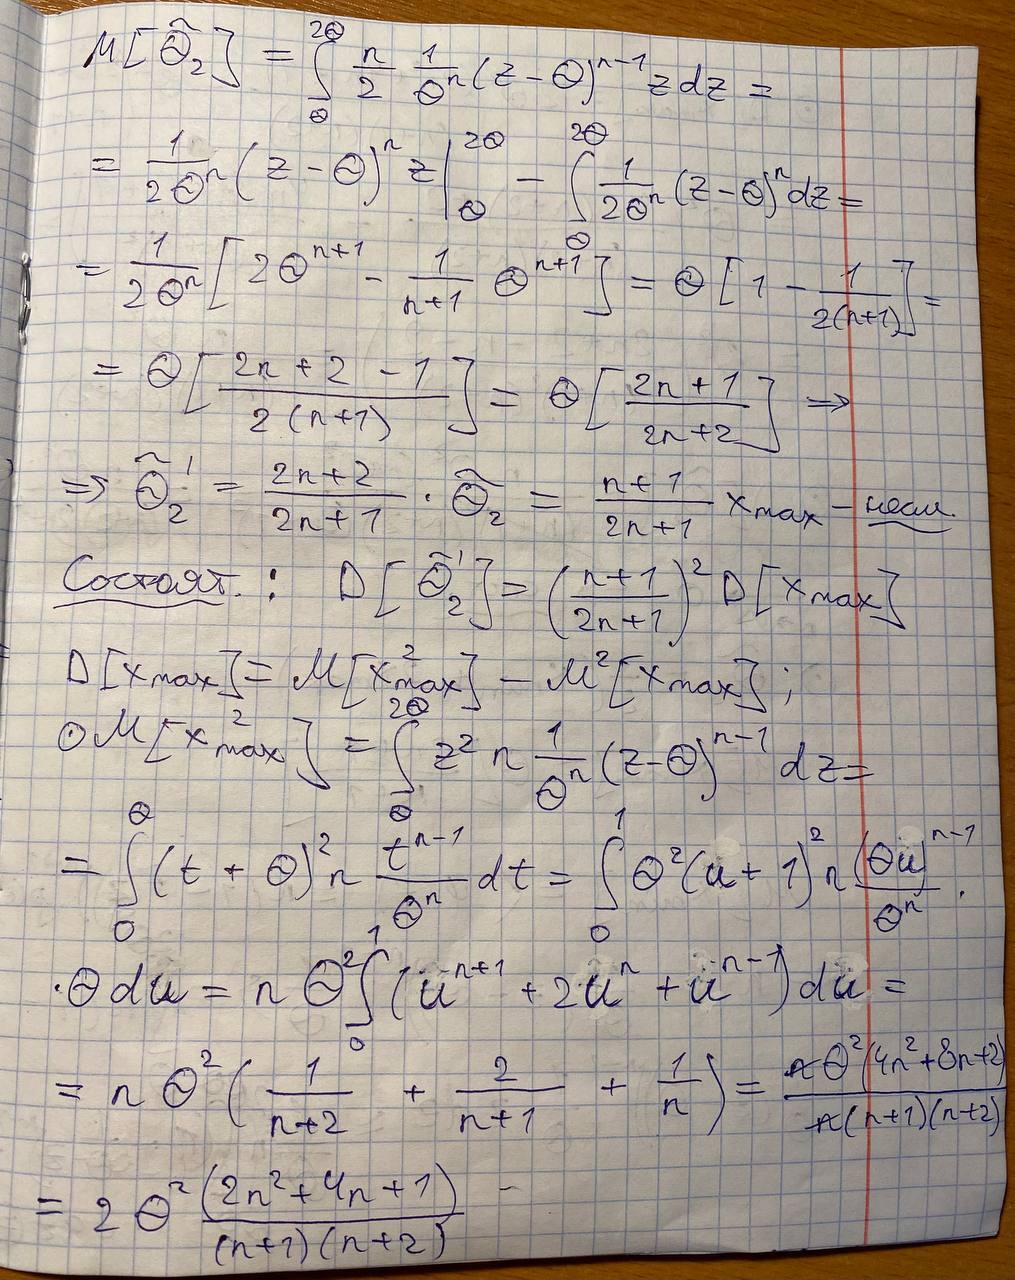 M[Θ̃₂] = ∫_Θ^{2Θ} n/2 1/Θⁿ (z − Θ)ⁿ⁻¹ z dz =
= 1/(2Θⁿ) (z − Θ)ⁿ z |_Θ^{2Θ} − ∫_Θ^{2Θ} 1/(2Θⁿ) (z − Θ)ⁿ dz =
= 1/(2Θⁿ) [2Θⁿ⁺¹ − 1/(n+1) Θⁿ⁺¹] = Θ [1 − 1/(2(n+1))] =
= Θ [(2n + 2 − 1)/(2(n+1))] = Θ [(2n + 1)/(2n+2)] ⇒
⇒ Θ̃₂' = (2n+2)/(2n+1) · Θ̃₂ = (n+1)/(2n+1) x_max – несм.
Состоят. : D[Θ̃₂'] = ((n+1)/(2n+1))² D[x_max]
D[x_max] = M[x²_max] − M²[x_max] ;
⊙ M[x²_max] = ∫_Θ^{2Θ} z² n 1/Θⁿ (z−Θ)ⁿ⁻¹ dz =
= ∫_0^Θ (t + Θ)² n tⁿ⁻¹/Θⁿ dt = ∫_0^1 Θ²(u + 1)² n (Θu)ⁿ⁻¹/Θⁿ ·
· Θ du = n Θ² ∫_0^1 (uⁿ⁺¹ + 2uⁿ + uⁿ⁻¹) du =
= n Θ² (1/(n+2) + 2/(n+1) + 1/n) = nΘ²(4n²+8n+2)/(n(n+1)(n+2))
= 2Θ² (2n²+4n+1)/((n+1)(n+2)) –